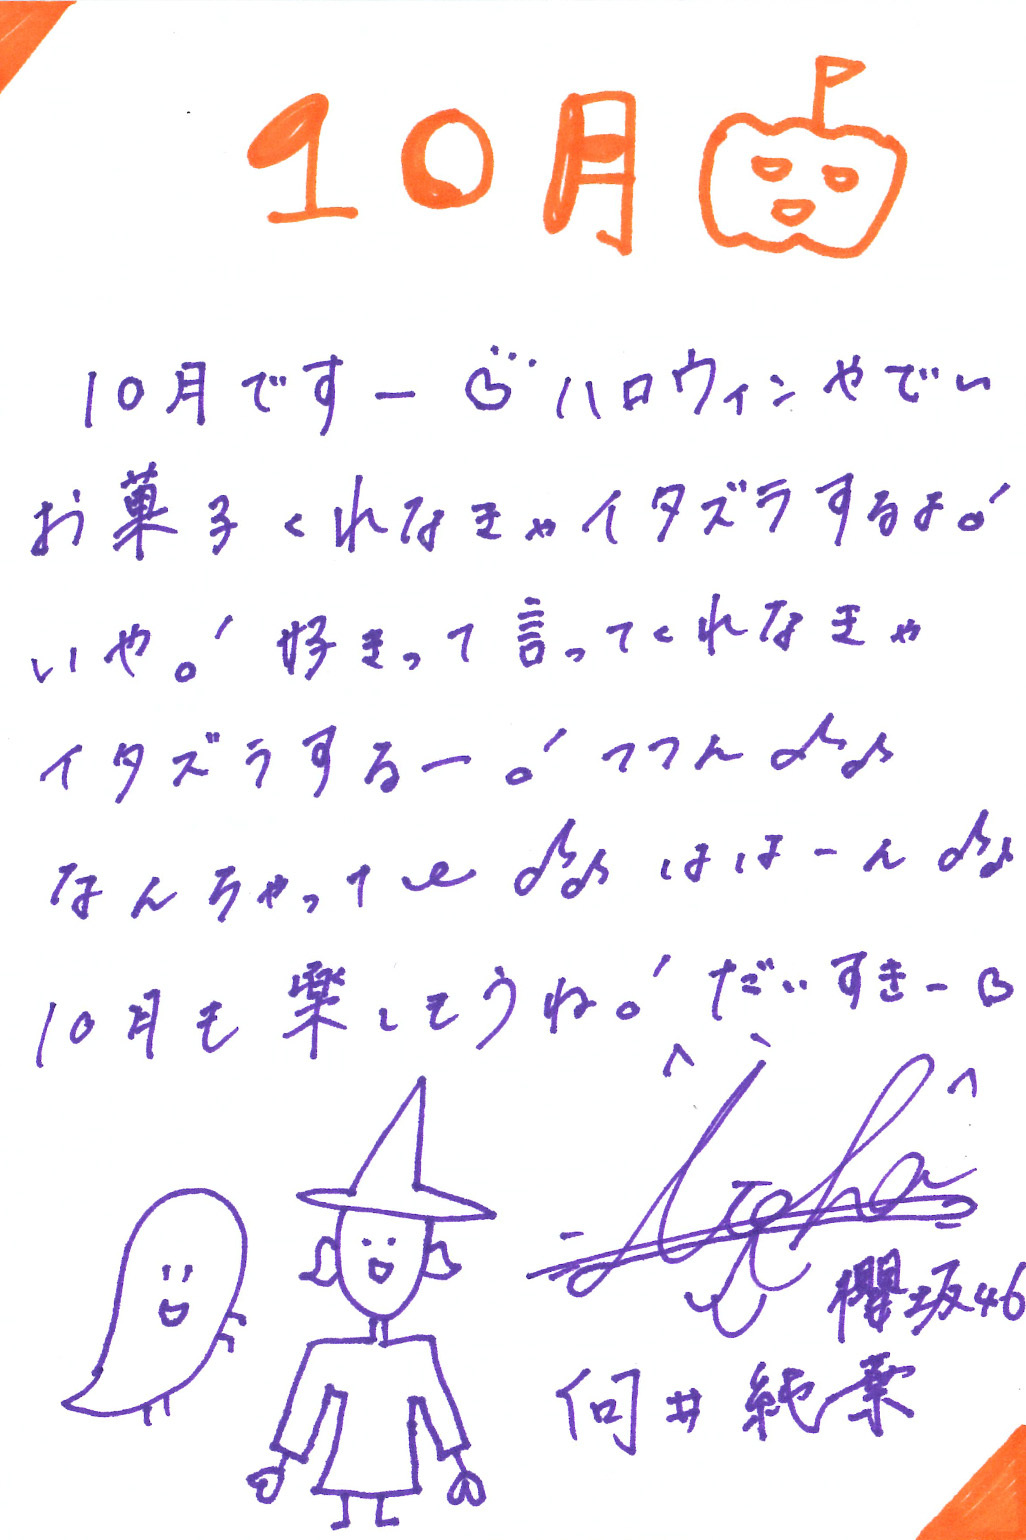 10月
10月ですー♡ハロウィンやでい
お菓子くれなきゃイタズラするよ!
いや!好きって言ってくれなきゃ
イタズラするー!つってん♪♪
なんちゃって♪♪ほほーん♪♪
10月も楽しもうね!だいすきー♡
櫻坂46